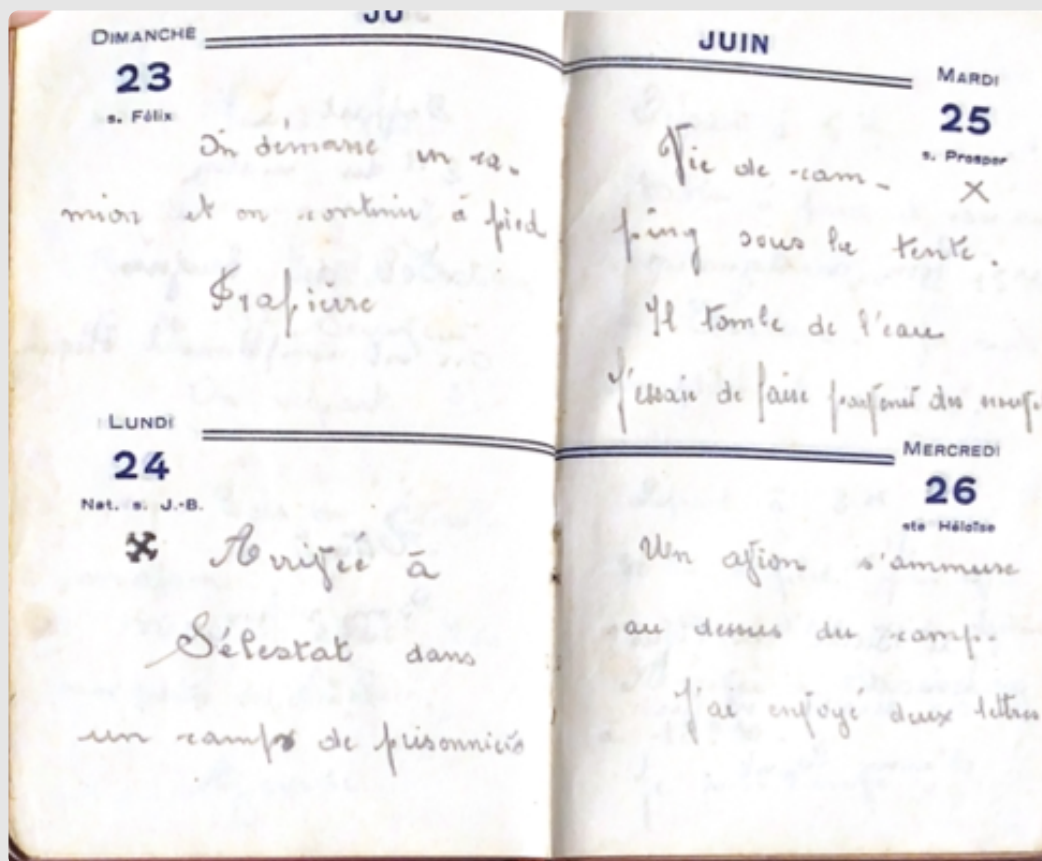 DIMANCHE
23
s. Félix
On démarre en ca-
mion et on continu à pied
LUNDI
24
Nat. s. J.-B.
Arrivée à
Sélestat dans
un camps de prisonniers
JUIN
MARDI
25
s. Prosper
X
Vie de cam-
ping sous la tente.
Il tombe de l'eau
J'essaie de faire parvenir des
MERCREDI
26
ste Héloïse
Un avion s'ammuse
au dessus du camp.
J'ai envoyé deux lettres